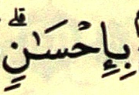 بِإِحْسَـٰنٍۗ